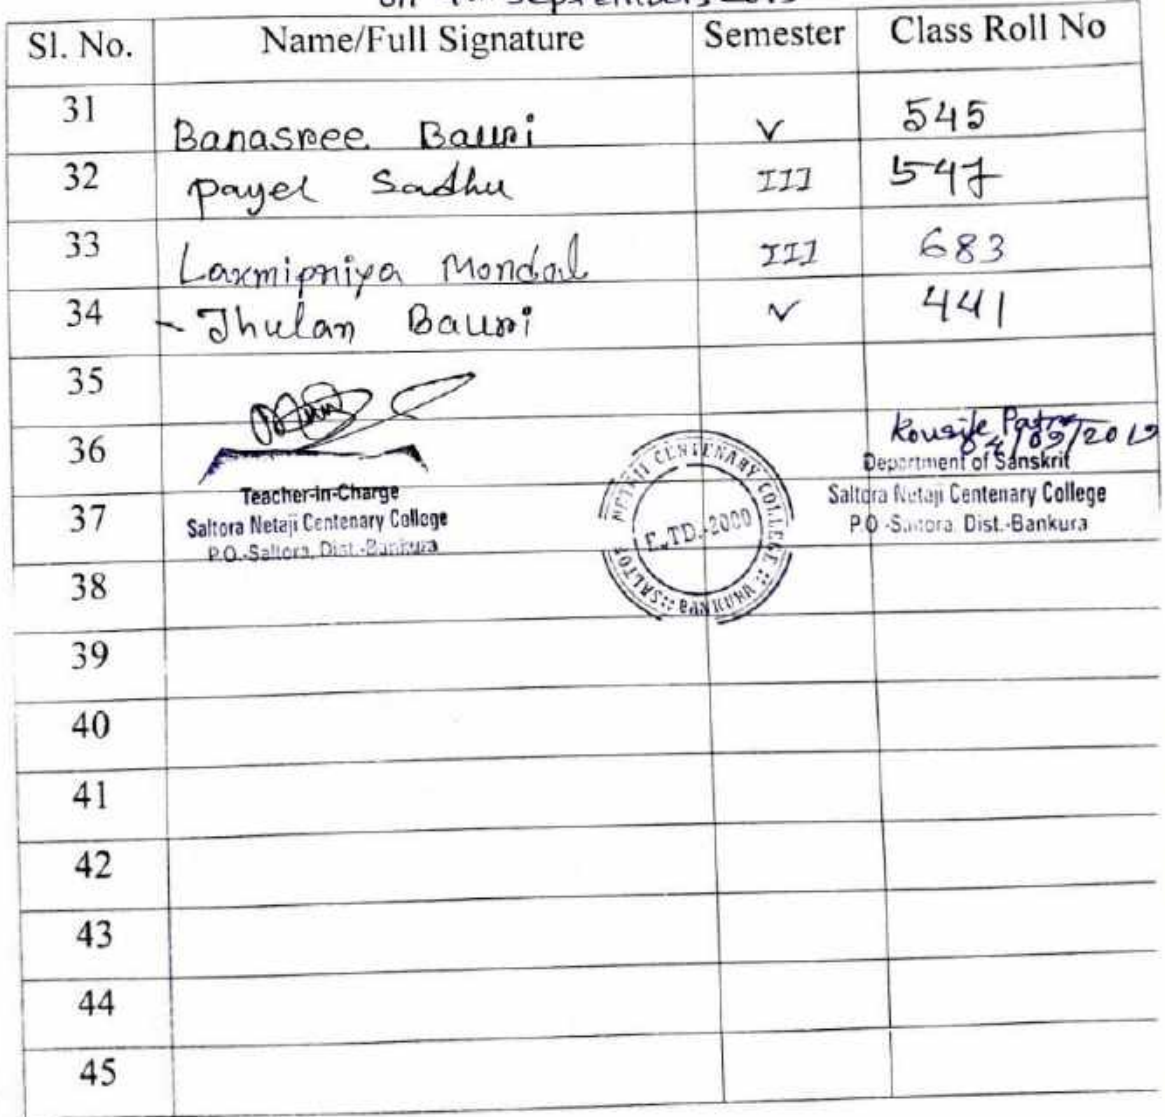 on September, 2019
Sl. No. Name/Full Signature Semester Class Roll No
31 Banasree Bauri V 545
32 Payel Sadhu III 547
33 Laxmipriya Mondal III 683
34 Jhulan Bauri V 441
35
36
37
38
39
40
41
42
43
44
45
Teacher-in-Charge
Saltora Netaji Centenary College
P.O.-Saltora, Dist.-Bankura
SALTORA NETAJI CENTENARY COLLEGE :: BANKURA ::
ESTD.-2000
Kousik Patra
4/09/2019
Department of Sanskrit
Saltora Netaji Centenary College
P.O.-Saltora, Dist.-Bankura